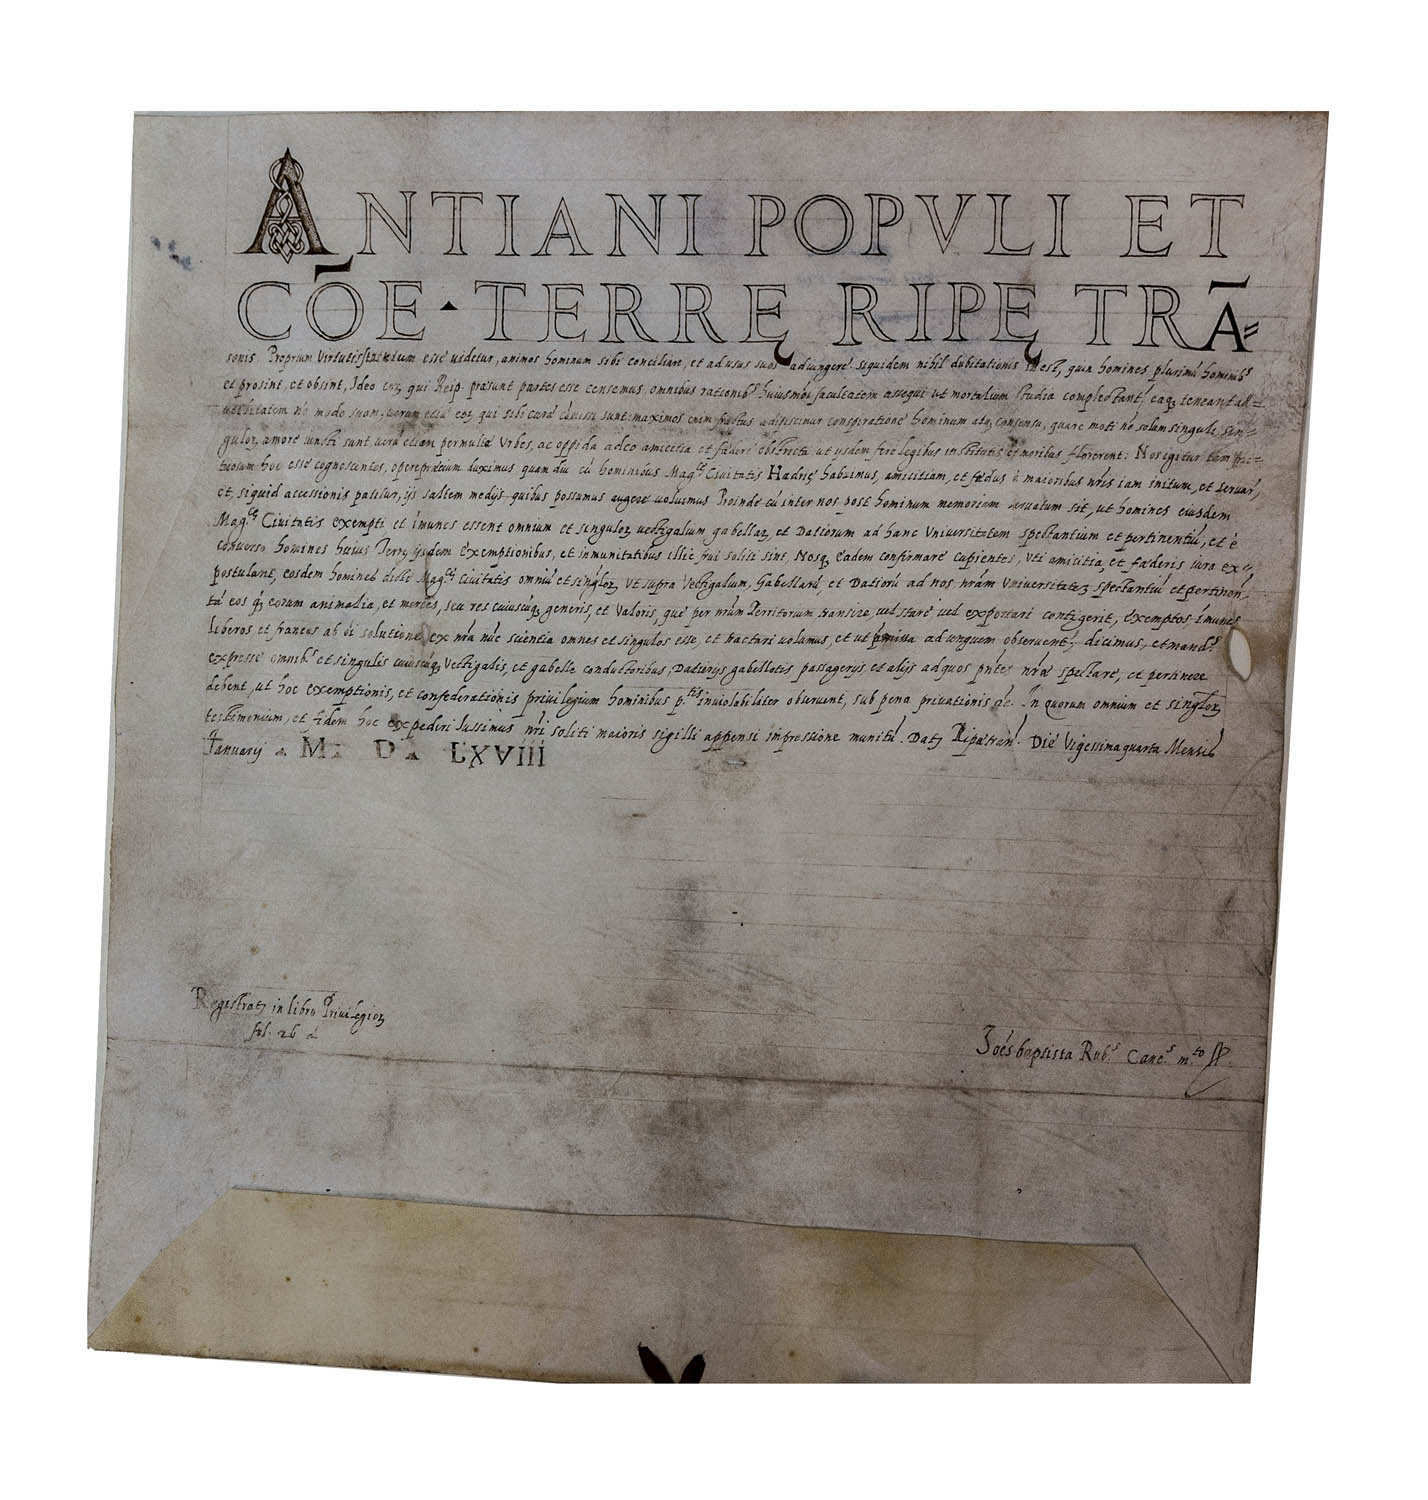 ANTIANI POPVLI ET
CŌE · TERRĘ RIPĘ TRĀ=
sonis Proprium Virtutis esse uidetur, animos hominum sibi conciliare, et ad usus suos adiungere siquidem nihil dubitationis inest, quin homines plurimū hominibꝰ
et prosint, et obsint, Ideo qui Resp. præsunt partes esse censemus, omnibus rationibꝰ huiusmōi facultatem assequi ut mortalium studia complectant, eaqꝫ teneant ad
utilitatem nō modo suam, uerum qui sibi curæ sunt: maximos enim fructus adipiscimur conspiratione hominum atqꝫ consensu, quare moti nō solum singuli sin=
guloꝝ amore uincti sunt uerū etiam permultæ Vrbes, ac oppida adeo amicitia et fædere obstricta ut ijsdem fere legibus institutis et moribus florerent: Nos igitur
tuosum hoc esse cognoscentes, operepræcium duximus quam diu cū hominibus Mag.cę Ciuitatis Hadrię habuimus, amicitiam, et fædus è maioribus nr̄is iam initum, et seruar̄,
et, siquid accessionis patitur, ijs saltem medijs quibus possumus augere uoluimus Proinde cū inter nos post hominum memoriam seruatum sit, ut homines eiusdem
Mag.cę Ciuitatis exempti et īmunes essent omnium et singuloꝝ uectigalium gabellaꝝ, et Datiorum ad hanc Vniuersitatem spectantium et pertinentiū, et è
conuerso homines huius Terrę ijsdem exemptionibus, et inmunitatibus illic frui soliti sint, Nosqꝫ eadem confirmare cupientes, Vti amicitia, et fæderis iura ex=
postulant, eosdem homines dictę Mag.cę Ciuitatis omniū et singloꝝ ut supra Vectigalium, Gabellarū, et Datiorū ad nos nr̄am Vniuersitatem spectantiū et pertinen=
tiū eos qꝫ eorum animalia, et merces, seu res cuiuscūqꝫ generis, et Valoris, quę per nr̄um Territorium transire, uel stare uel exportari contigerit, exemptos īmunes
liberos et francos ab oī solutione ex nr̄a nūc scientia omnes et singulos esse, et tractari volumus, et ut p̄missa ad unguem obseruent, dicimus, et mand.s
expresse omnibꝰ et singulis cuiuscūqꝫ Vectigalis, et gabellę conductoribus, Datiarijs gabellotis passagerijs, et alijs ad quos pn̄tes nr̄æ spectare, et pertinere
debent, ut hoc exemptionis, et confederationis priuilegium hominibus p.tis inuiolabiliter obseruent, sub pena priuationis In quorum omnium et singloꝝ
testimonium, et fidem hoc expediri iussimus nr̄i soliti maioris sigilli appensi impressione munitū. Datꝫ Ripætran. Die Vigessima quarta Mensis
Januarij M D LXVIII
Registratꝫ in libro Priuilegioꝝ
fol: 26
Joēs baptista Rub.s Canc.s m.to